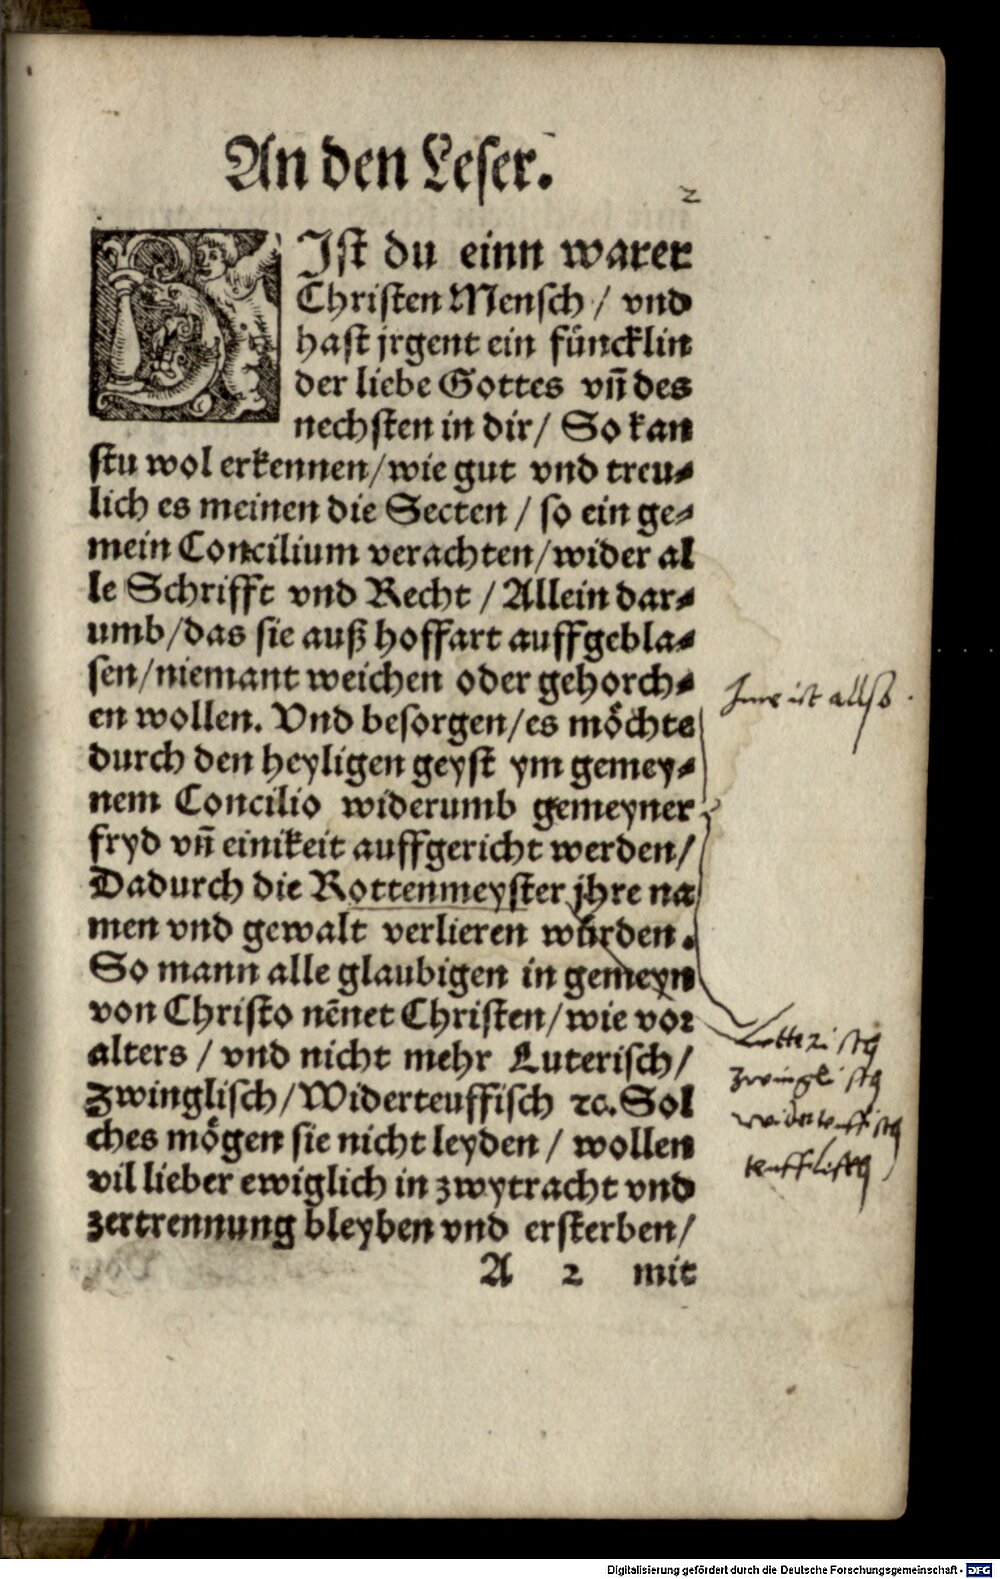 An den Leser.
2
BJst du einn warer
Christen Mensch / vnd
hast jrgent ein füncklin
der liebe Gottes vñ des
nechsten in dir / So kan
stu wol erkennen / wie gut vnd treu⸗
lich es meinen die Secten / so ein ge⸗
mein Concilium verachten / wider al
le Schrifft vnd Recht / Allein dar⸗
umb / das sie auß hoffart auffgebla⸗
sen / niemant weichen oder gehorch⸗
en wollen. Vnd besorgen / es möchte
durch den heyligen geyst ym gemey⸗
nem Concilio widerumb gemeyner
fryd vñ einikeit auffgericht werden /
Dadurch die Rottenmeyster jhre na
men vnd gewalt verlieren würden.
So mann alle glaubigen in gemeyn
von Christo nēnet Christen / wie vor
alters / vnd nicht mehr Luterisch /
Zwinglisch / Widerteuffisch ꝛc. Sol
ches mögen sie nicht leyden / wollen
vil lieber ewiglich in zwytracht vnd
zertrennung bleyben vnd ersterben /
A 2 mit
ist allso
zwinglisch
Digitalisierung gefördert durch die Deutsche Forschungsgemeinschaft - DFG